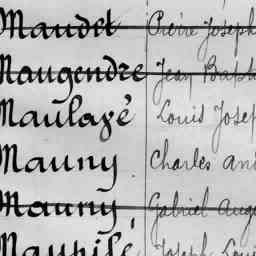 Maudet Pierre Joseph
Maugendre Jean Bapt
Maulayé Louis Josep
Mauny Charles And
Mauny Gabriel Augu
Maupilé Joseph Loui